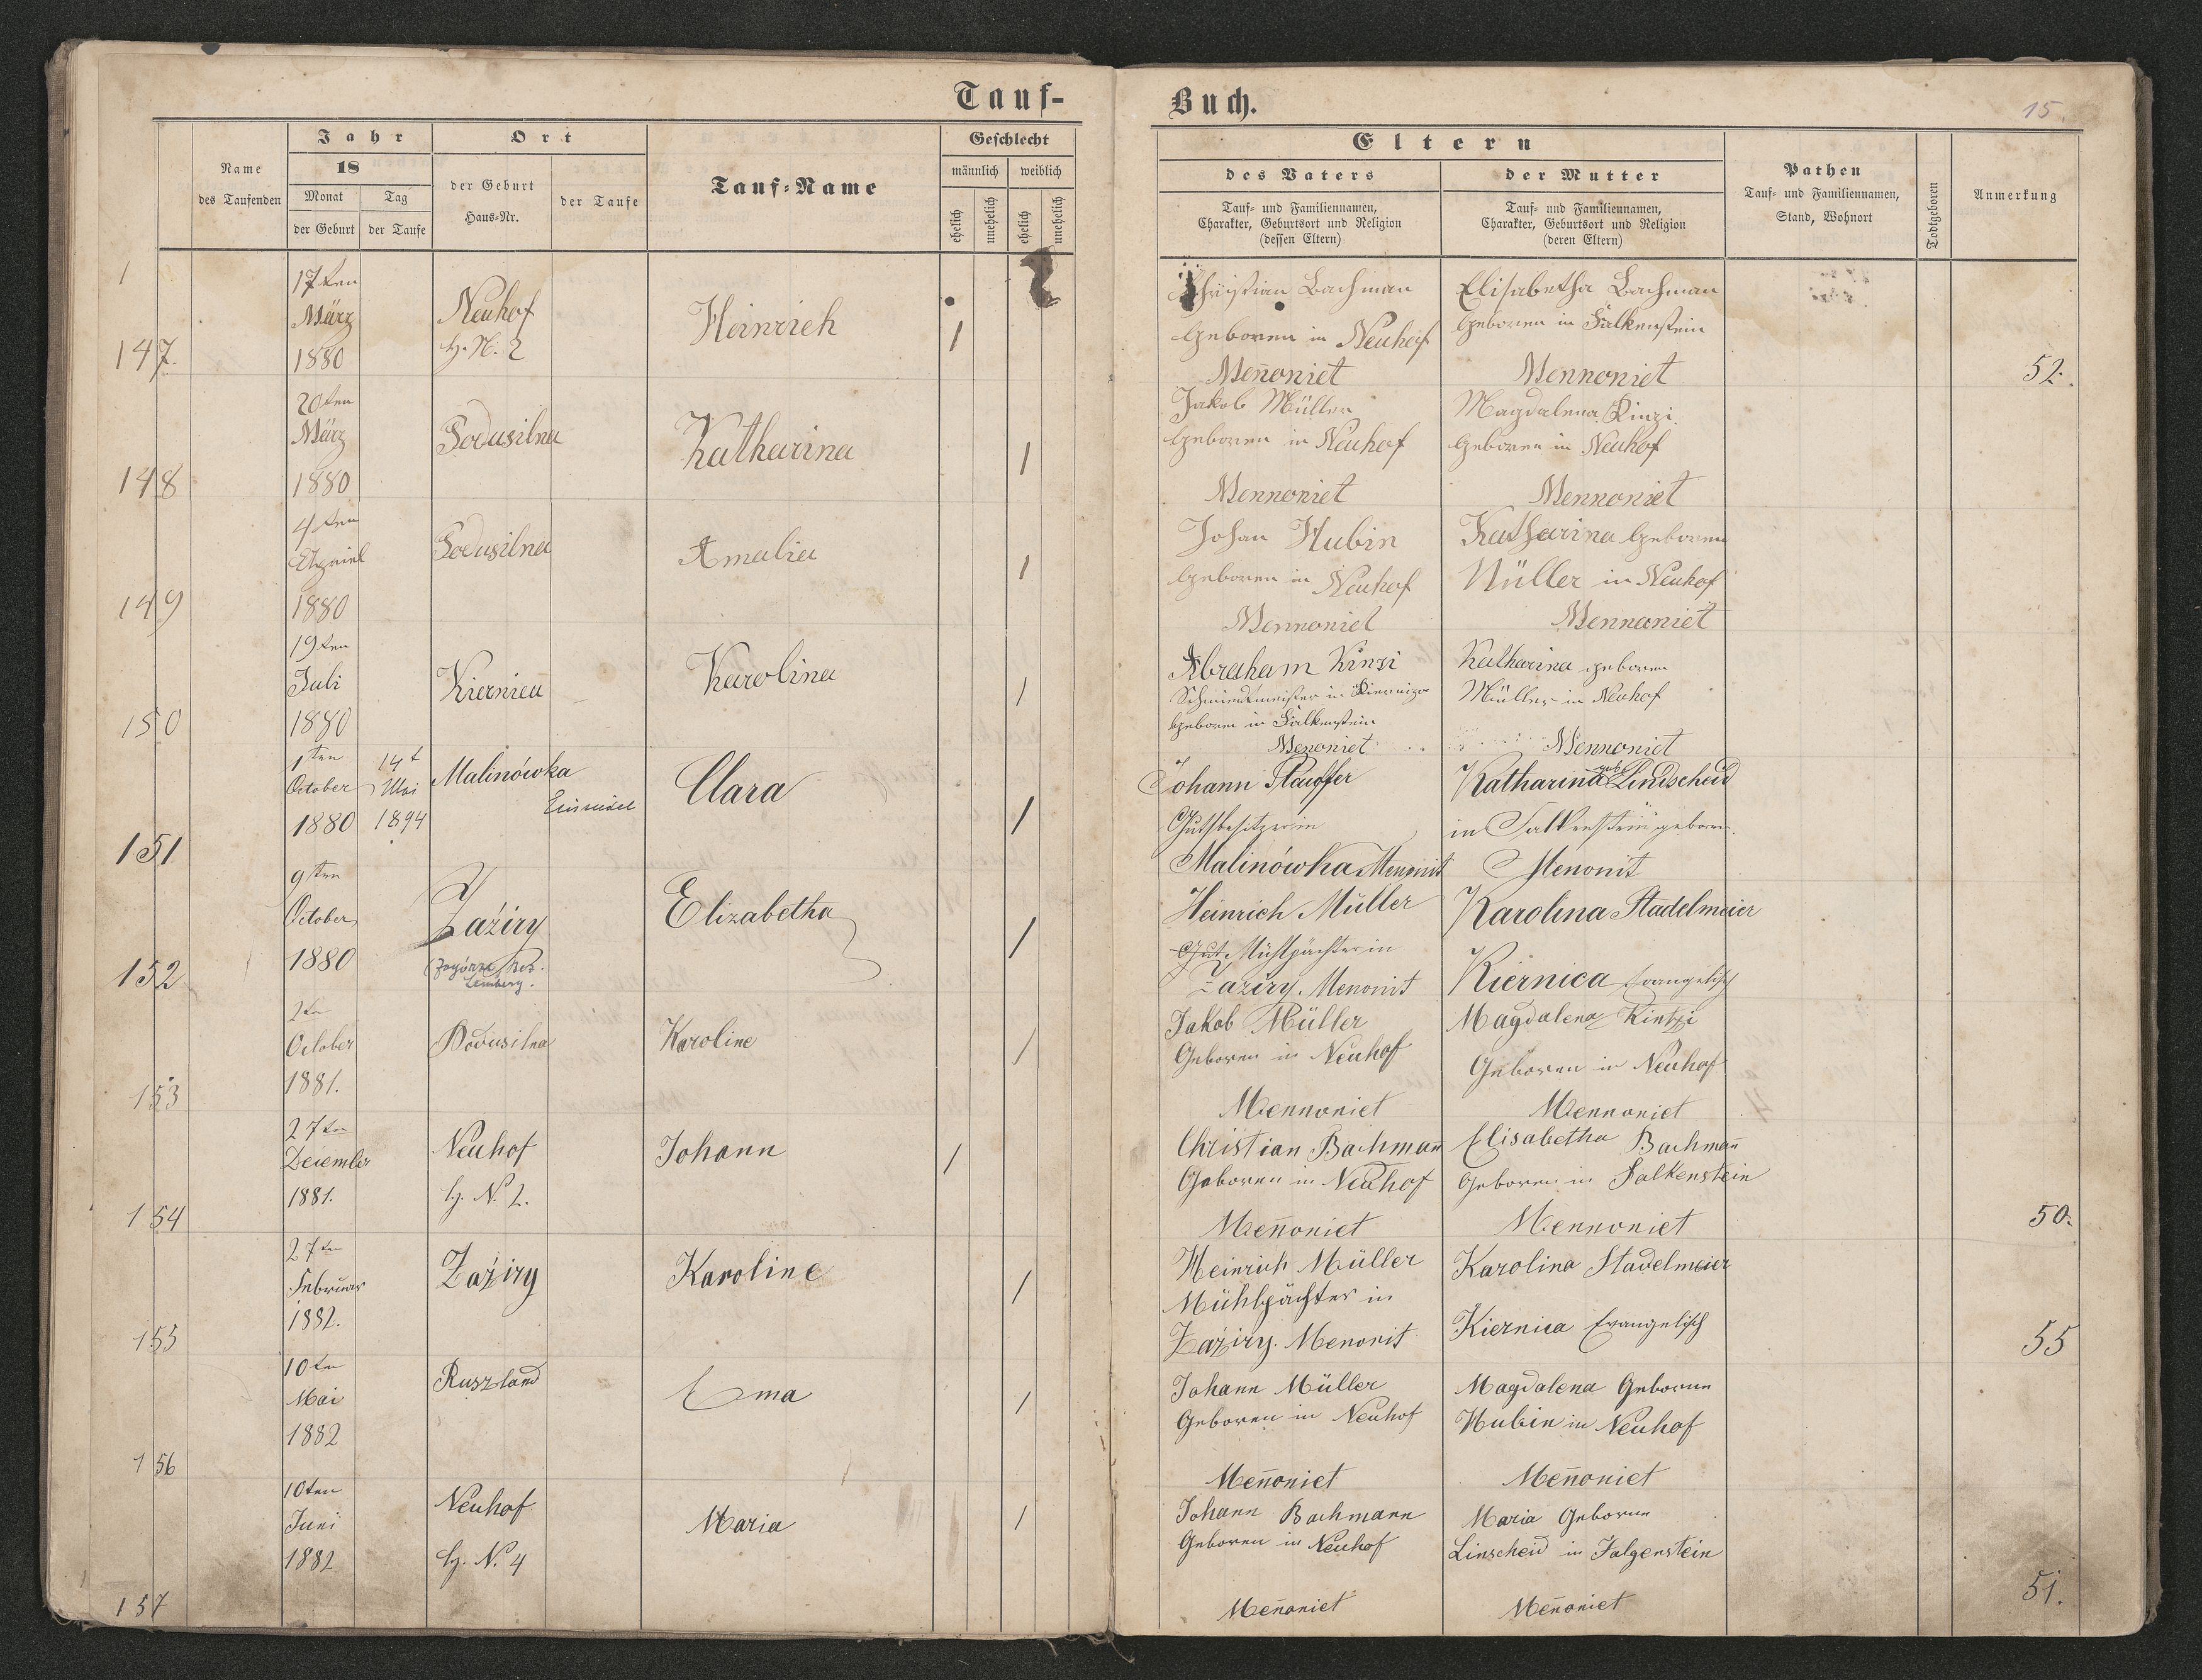 Tauf-
Buch.
15.
Jahr
Ort
Geschlecht
Eltern
Name
des Taufenden
18
Monat
der Geburt
Tag
der Taufe
der Geburt
Haus-Nr.
der Taufe
Tauf-Name
männlich
weiblich
ehelich
unehelich
ehelich
unehelich
des Vaters
Tauf- und Familiennamen,
Charakter, Geburtsort und Religion
(dessen Eltern)
der Mutter
Tauf- und Familiennamen,
Charakter, Geburtsort und Religion
(deren Eltern)
Pathen
Tauf- und Familiennamen,
Stand, Wohnort
Todtgeboren
Anmerkung
1
147.
17ten
März
1880
Neuhof
H. N. 2
Heinrich
1
Christian Bachman
Geboren in Neuhof
Men̄oniet
Elisabetha Bachman
Geboren in Falkenstein
Mennoniet
52.
148
20ten
März
1880
Podusilna
Katharina
1
Jakob Müller
Geboren in Neuhof
Mennoniet
Magdalena Kinzi
Geboren in Neuhof
Mennoniet
149
4ten
1880
Podusilna
Amalia
1
Johan Hubin
Geboren in Neuhof
Mennoniet
Katharina Geboren
Müller in Neuhof
Mennoniet
150
19ten
Juli
1880
Kiernica
Karolina
1
Abraham Kinzi
Schmiedtmeister in
Geboren in Falkenstein
Menoniet
Katharina geboren
Müller in Neuhof
Mennoniet
151
1ten
October
1880
14t
Mai
1894
Malinówka
Einsiedel
Clara
1
Johann Stauffer
Gutsbesitzer in
Malinówka Menonit
Katharina geb. Lindscheid
in Falkenstein geboren.
Menonit
152
9ten
October
1880
Zaźiry
Lemberg.
Elizabetha
1
Heinrich Müller
Gut. Mühlpächter in
Zaźiry. Menonit
Karolina Stadelmeier
Kiernica Evangelisch
153
2ten
October
1881.
Podusilna
Karoline
1
Jakob Müller
Geboren in Neuhof
Mennoniet
Magdalena Kintzi
Geboren in Neuhof
Mennoniet
154
27ten
December
1881.
Neuhof
H. N. 2.
Johann
1
Christian Bachman̄
Geboren in Neuhof
Men̄oniet
Elisabetha Bachman̄
Geboren in Falkenstein
Mennoniet
50.
155
27ten
Februar
1882.
Zaźiry
Karoline
1
Heinrich Müller
Mühlpächter in
Zaźiry. Menonit
Karolina Stadelmeier
Kiernica Evangelisch
55
156
10ten
Mai
1882
Ruszland
Ema
1
Johann Müller
Geboren in Neuhof
Men̄oniet
Magdalena Geborne
Hubin in Neuhof
Men̄oniet
157
10ten
Juni
1882
Neuhof
H. N. 4
Maria
1
Johann Bachmann
Geboren in Neuhof
Men̄oniet
Maria Geborne
Linscheid in Falgenstein
Men̄oniet
51.